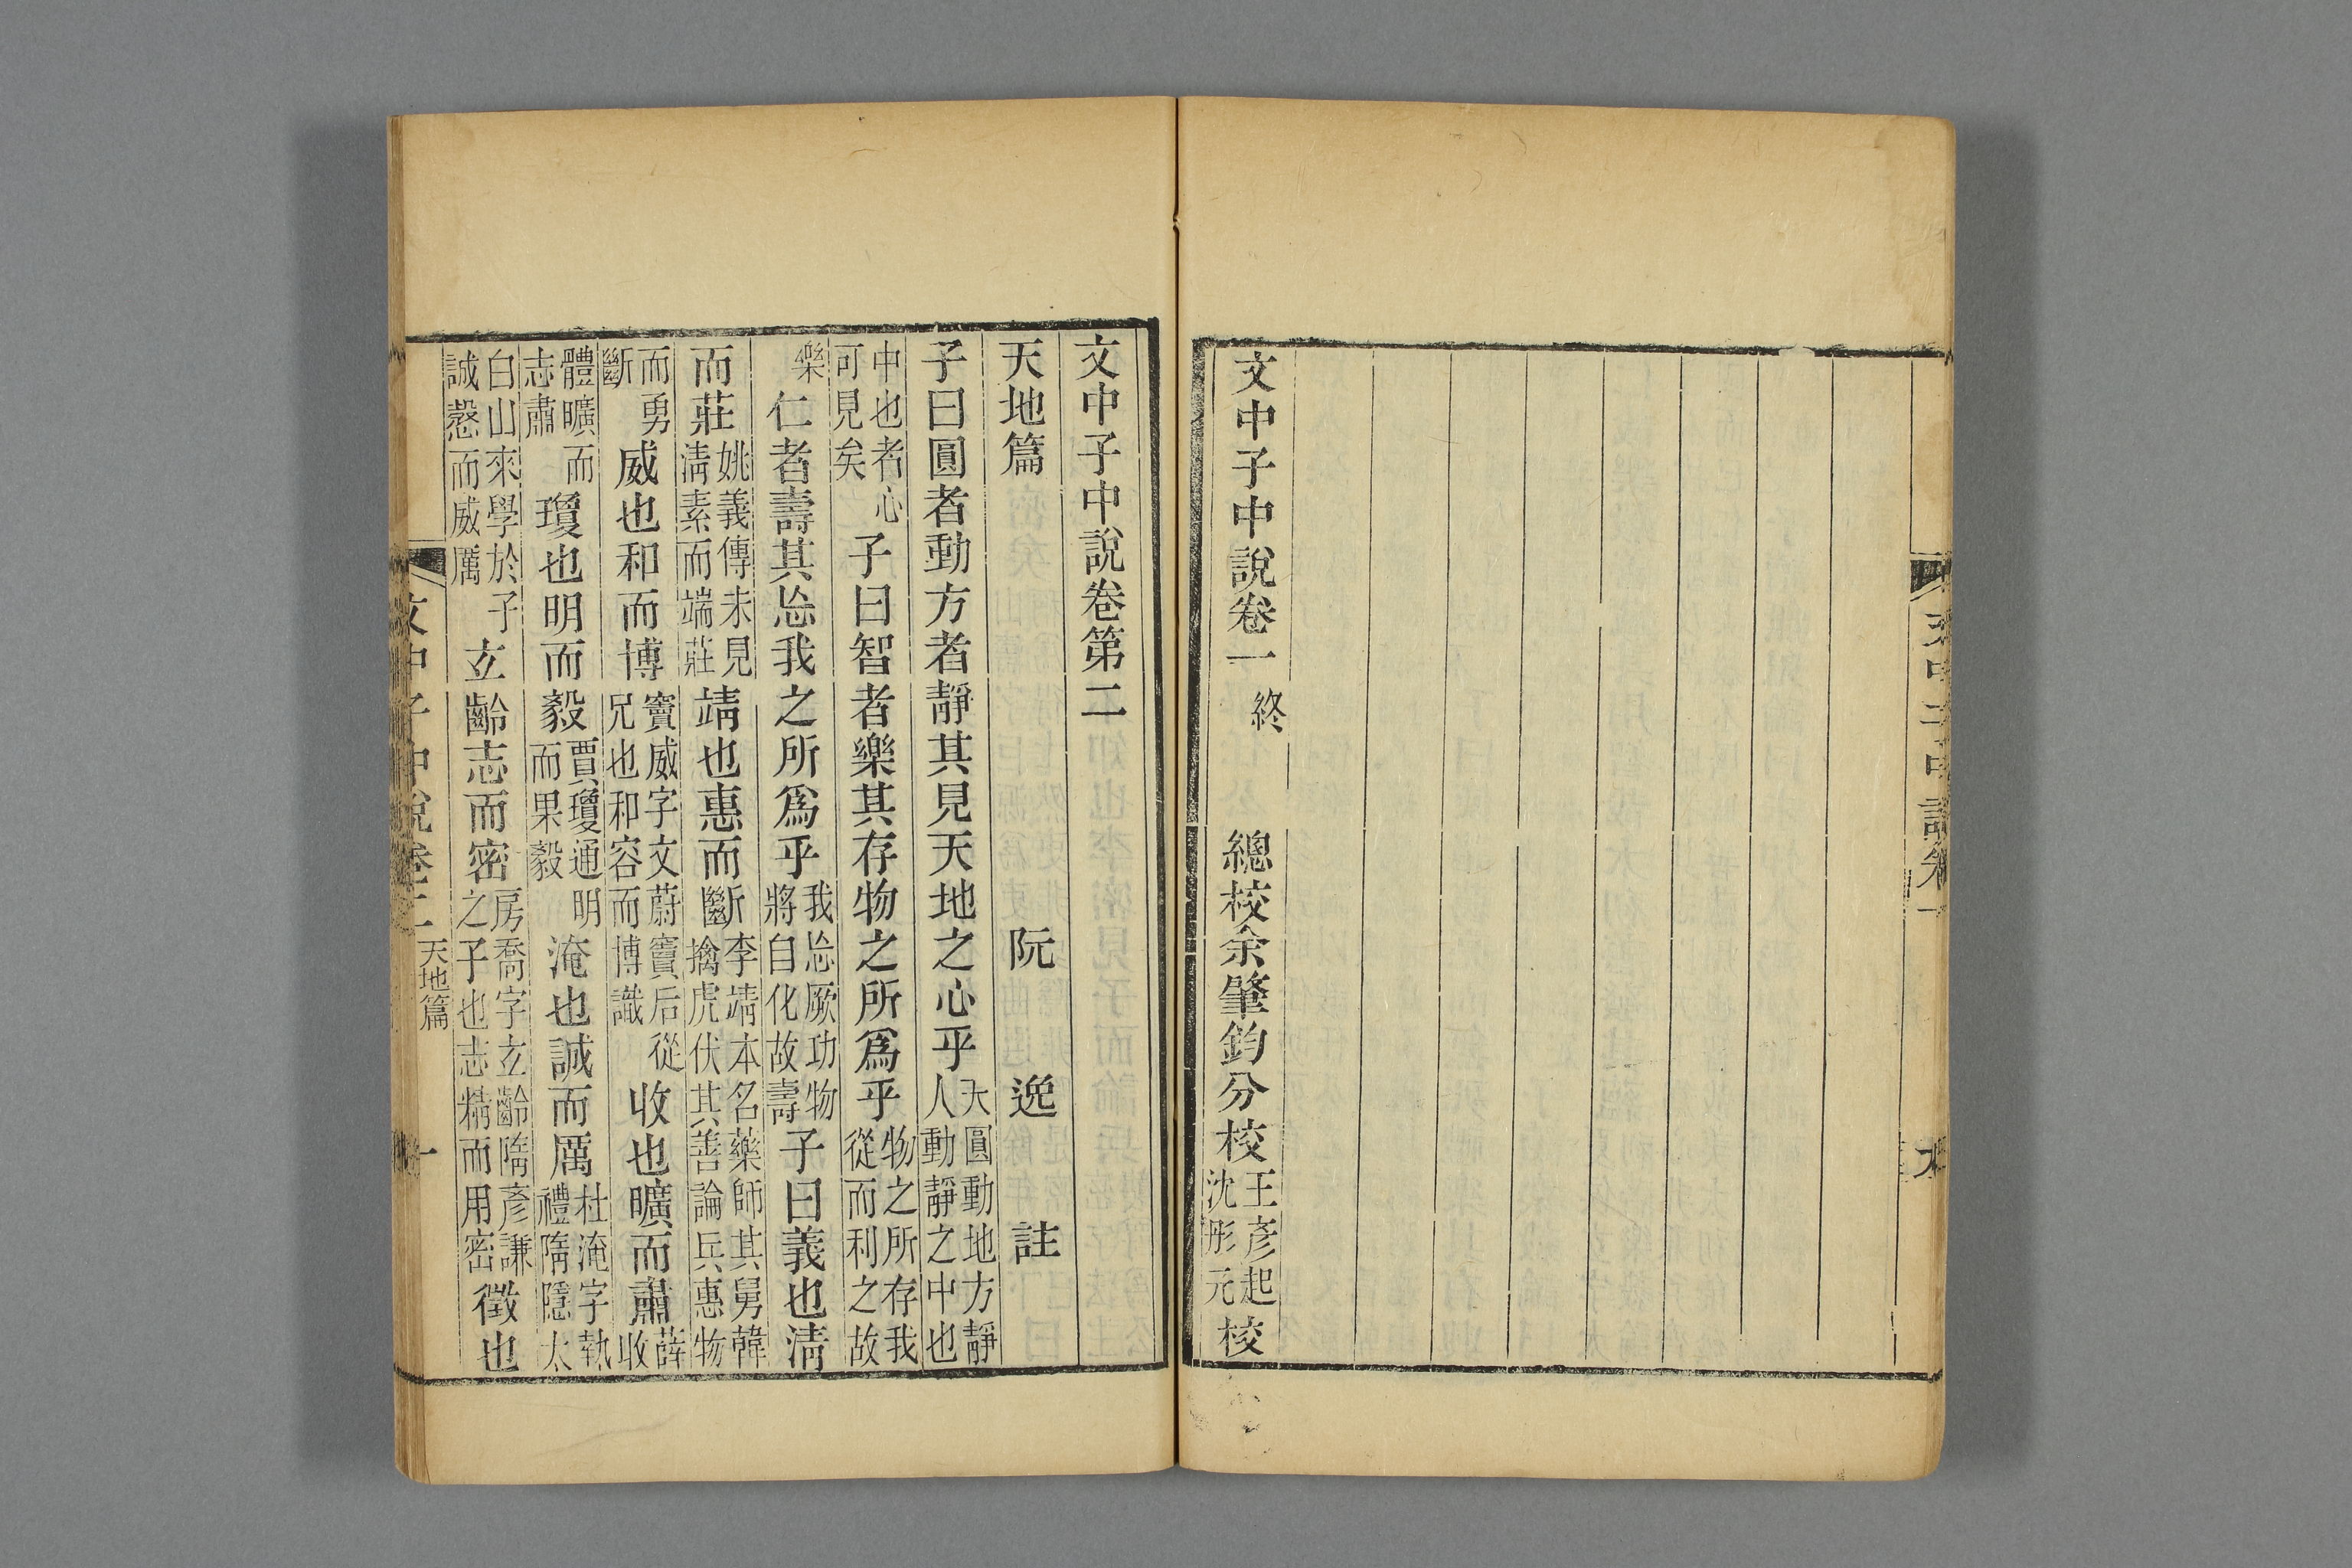 文中子中說卷一終　總校余肇鈞分校王彥起沈彤元校
文中子中說卷第二
天地篇　阮逸註
子曰圓者動方者靜其見天地之心乎天圓動地方靜人動靜之中也
中也者心可見矣子曰智者樂其存物之所爲乎物之所存我從而利之故
樂仁者壽其忘我之所爲乎我忘厥功物將自化故壽子曰義也淸
而莊姚義傳未見淸素而端莊靖也惠而斷李靖本名藥師其舅韓擒虎伏其善論兵惠物
而勇斷威也和而博竇威字文蔚竇后從兄也和容而博識收也曠而肅薛收
體曠而志肅瓊也明而毅賈瓊通明而果毅淹也誠而厲杜淹字執禮隋隱太
白山來學於子誠慤而威厲玄齡志而密房喬字玄齡隋彥謙之子也志精而用密徵也
文中子中說卷二　天地篇　一